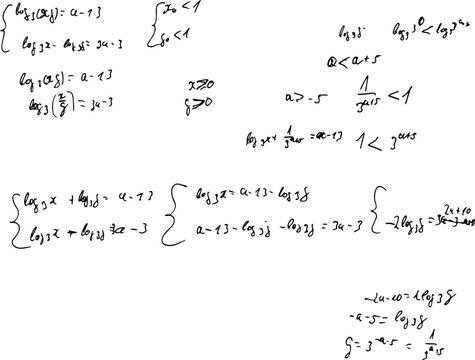 log₃(xy) = a-13
log₃x - log₃y = 3a-3
x₀ < 1
y₀ < 1
log₃(xy) = a-13
log₃(x/y) = 3a-3
x≥0
y≥0
log₃y
log₃3⁰ < log₃3ᵃ⁺⁵
0 < a+5
a > -5
1/3ᵃ⁺⁵ < 1
log₃x + 1/3ᵃ⁺⁵ = a-13
1 < 3ᵃ⁺⁵
log₃x + log₃y = a-13
log₃x - log₃y = 3a-3
log₃x = a-13-log₃y
a-13-log₃y - log₃y = 3a-3
-2log₃y = 2a+10
-2a-10 = 2log₃y
-a-5 = log₃y
y = 3⁻ᵃ⁻⁵ = 1/3ᵃ⁺⁵